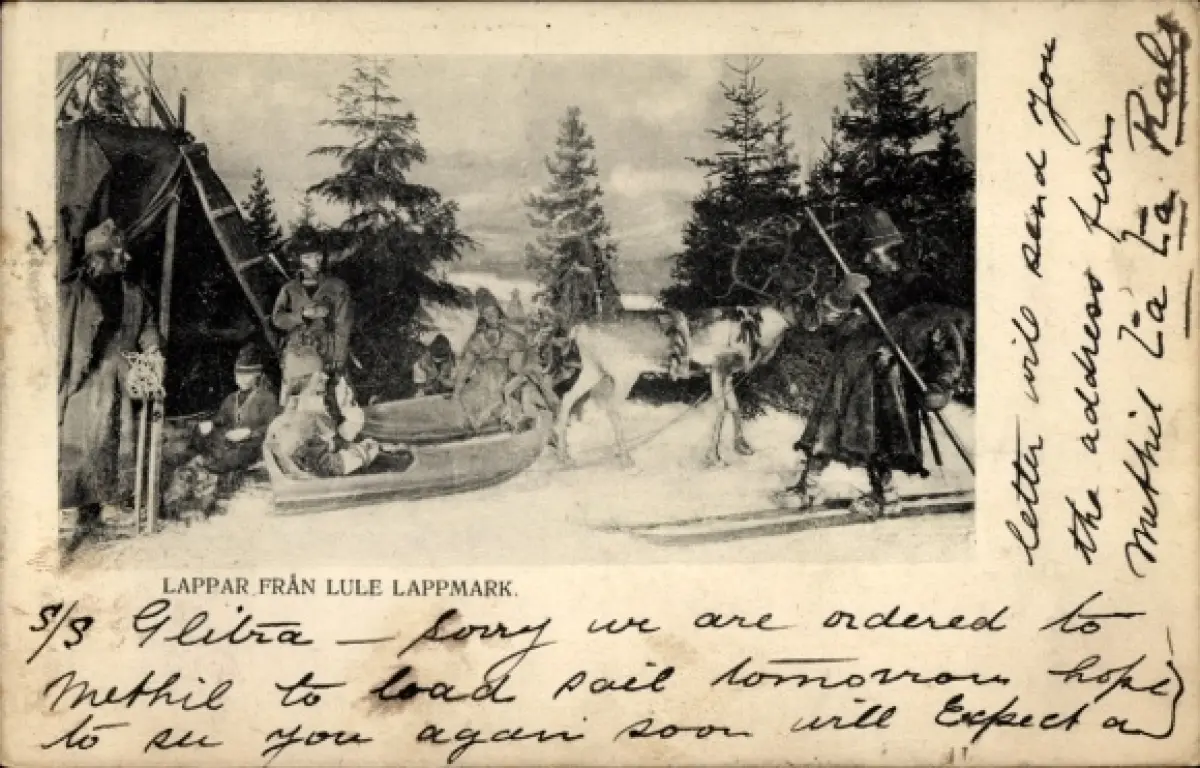 LAPPAR FRÅN LULE LAPPMARK.
S/S Glitra — Sorry we are ordered to
Methil to load sail tomorrow hope
to see you again soon will Expect a
letter wil send you
the address from
Methil Ta Ta Ta